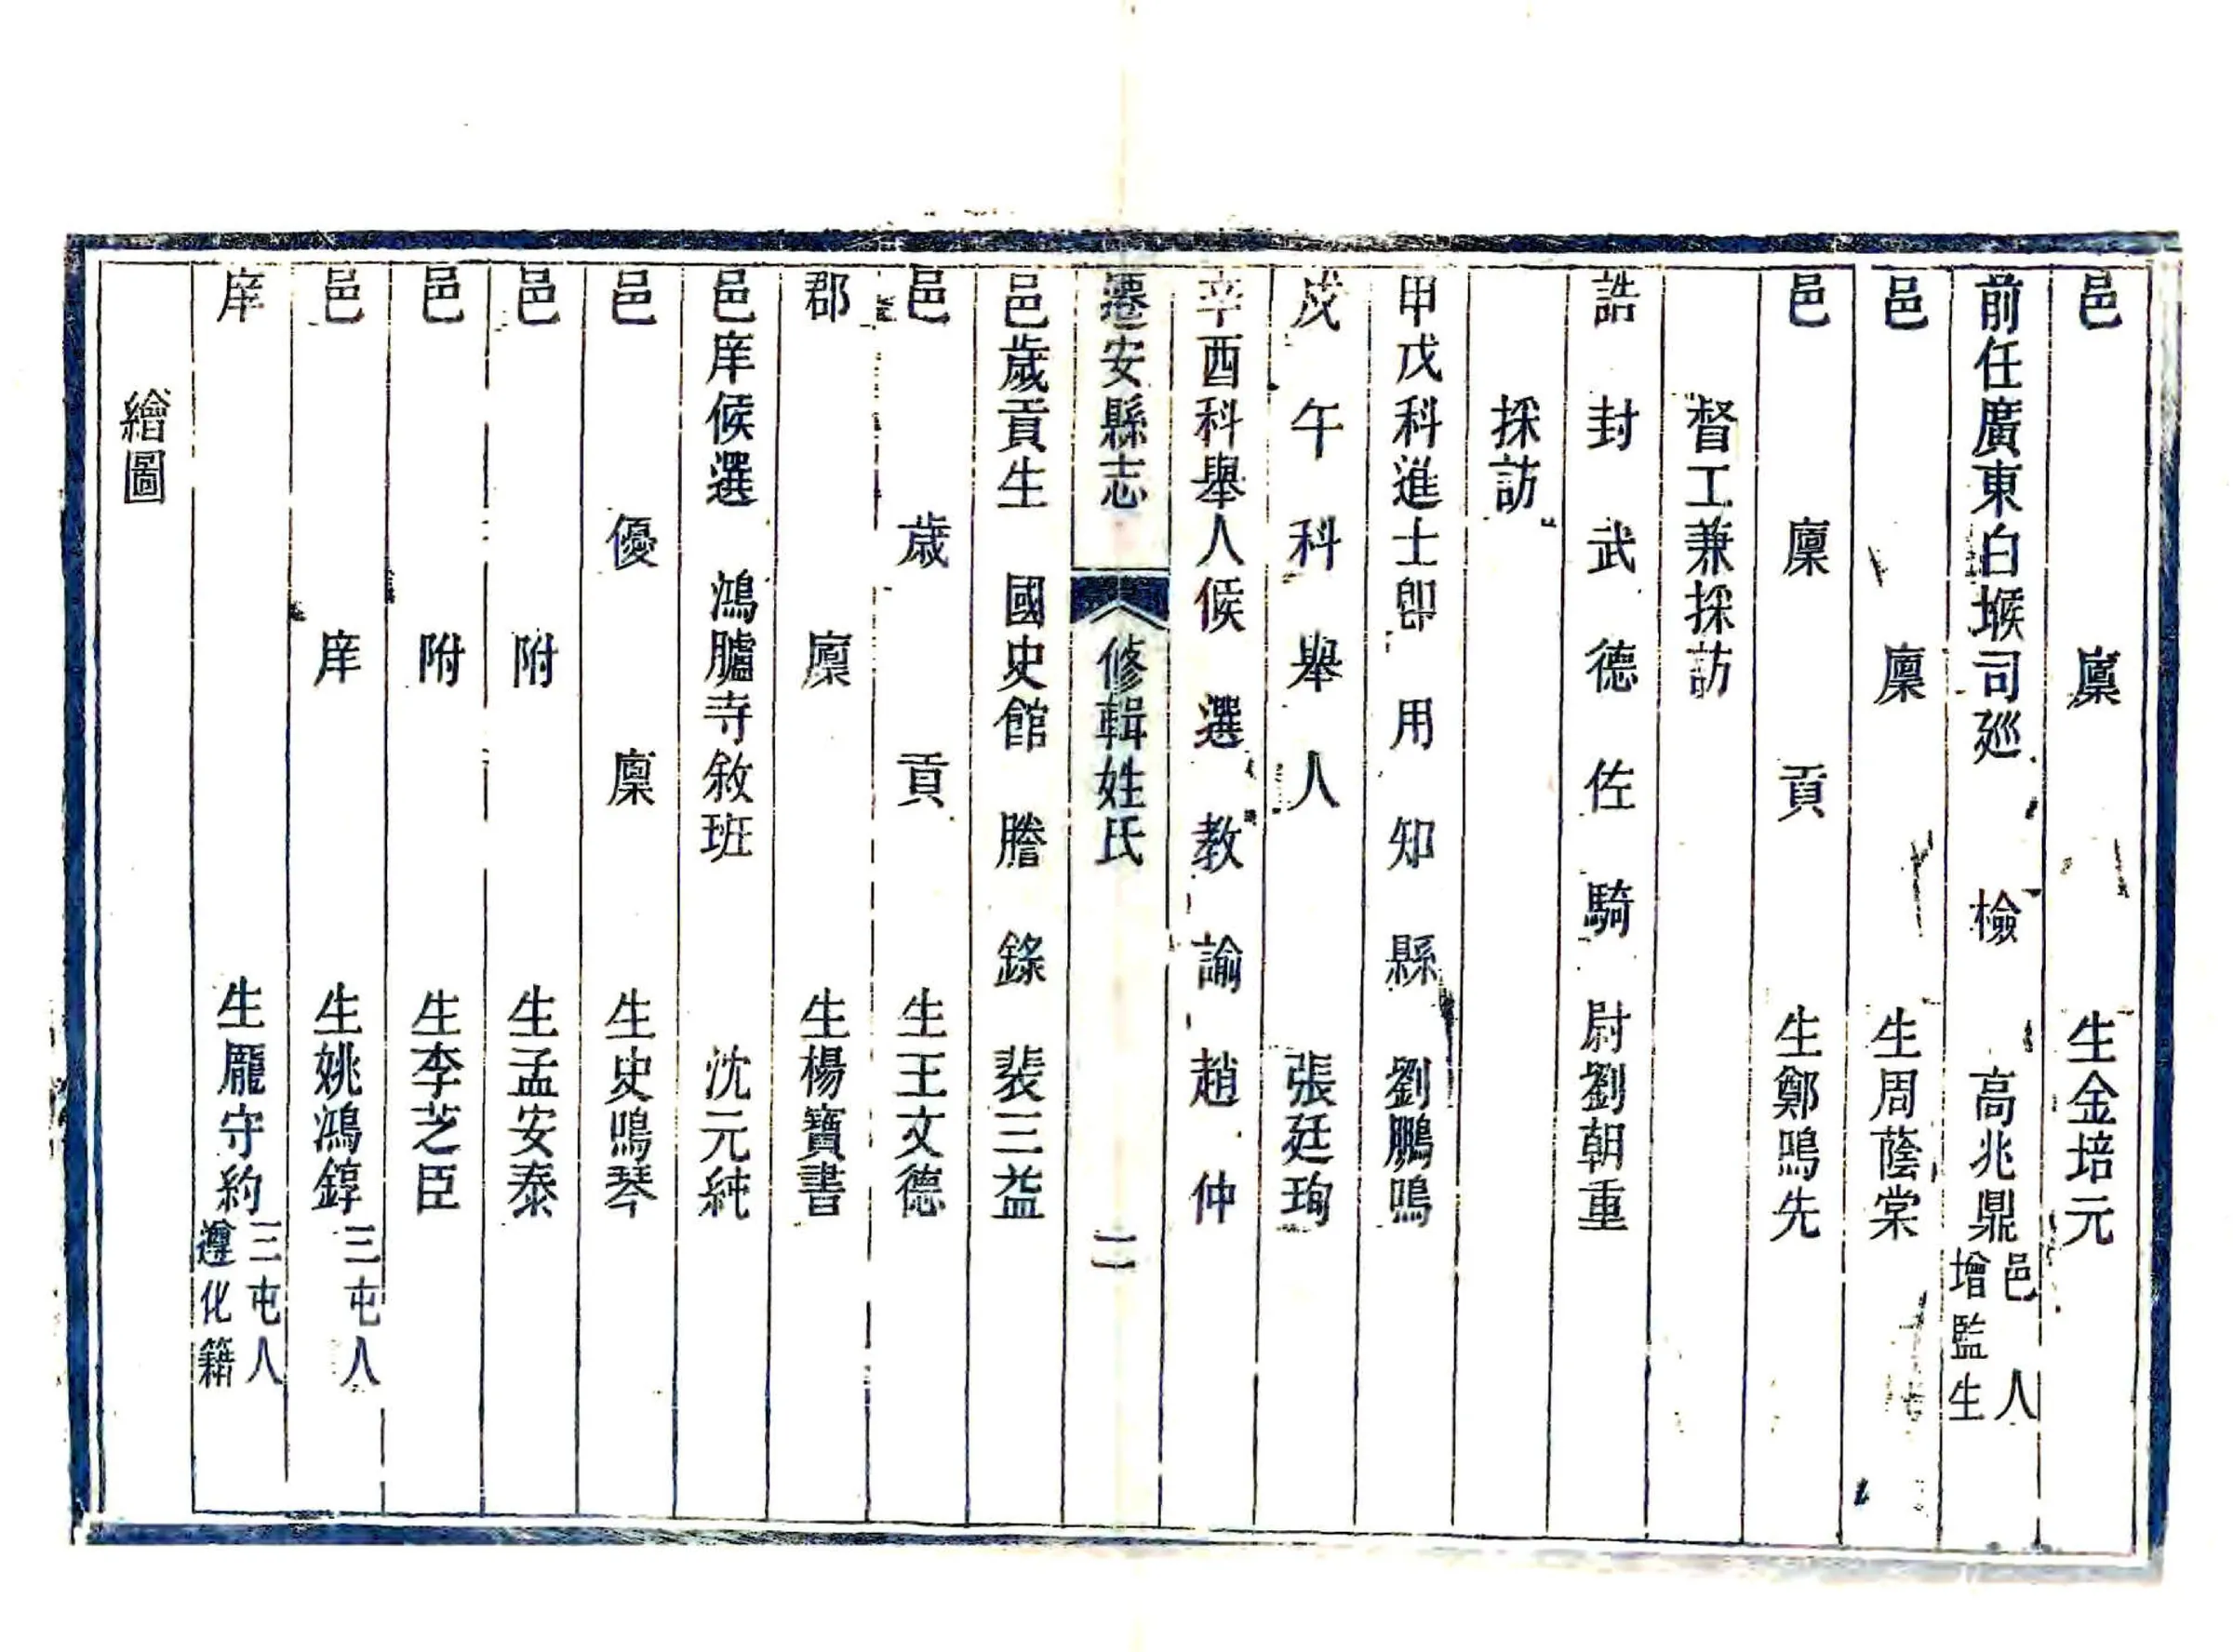 邑廩生金培元
前任廣東白堠司廵檢高兆鼎邑人增監生
邑廩生周蔭棠
邑廩貢生鄭鳴先
督工兼採訪
誥封武德佐騎尉劉朝重
採訪
甲戌科進士卽用知縣劉鵬鳴
戊午科舉人張廷珣
辛酉科舉人候選教諭趙仲
遷安縣志
修輯姓氏
二
邑歲貢生國史館謄錄裴三益
邑歲貢生王文德
郡廩生楊寶書
邑庠候選鴻臚寺敘班沈元純
邑優廩生史鳴琴
邑附生孟安泰
邑附生李芝臣
邑庠生姚鴻錞三屯人
庠生龎守約三屯人遵化籍
繪圖